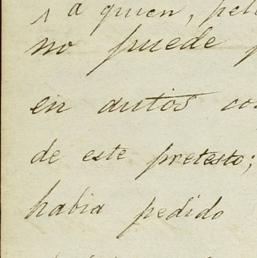 a quien, pel
no puede
en autos co
de este pretesto;
habia pedido